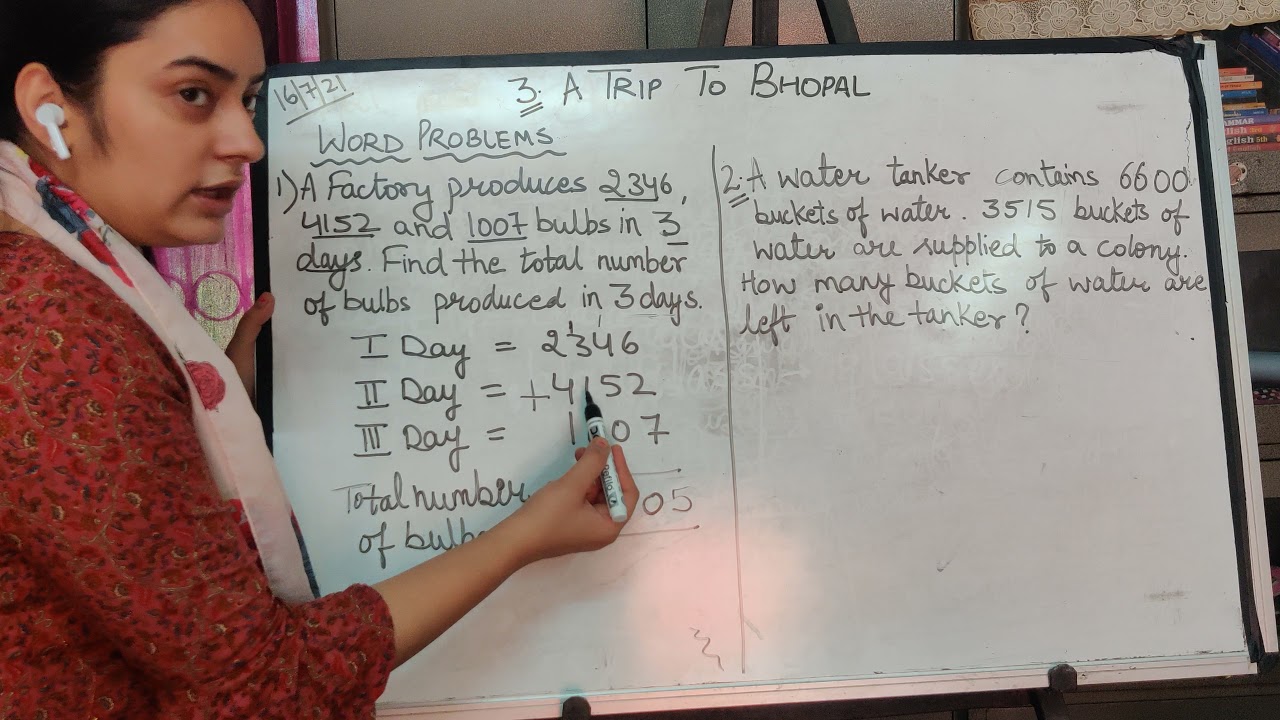 16/7/21
3. A TRIP TO BHOPAL
WORD PROBLEMS
1) A Factory produces 2346,
4152 and 1007 bulbs in 3
days. Find the total number
of bulbs produced in 3 days.
1 1
I Day = 2346
II Day = +4152
III Day = 1 07
Total number
of bulbs 05
2. A water tanker contains 6600
buckets of water. 3515 buckets of
water are supplied to a colony.
How many buckets of water are
left in the tanker?